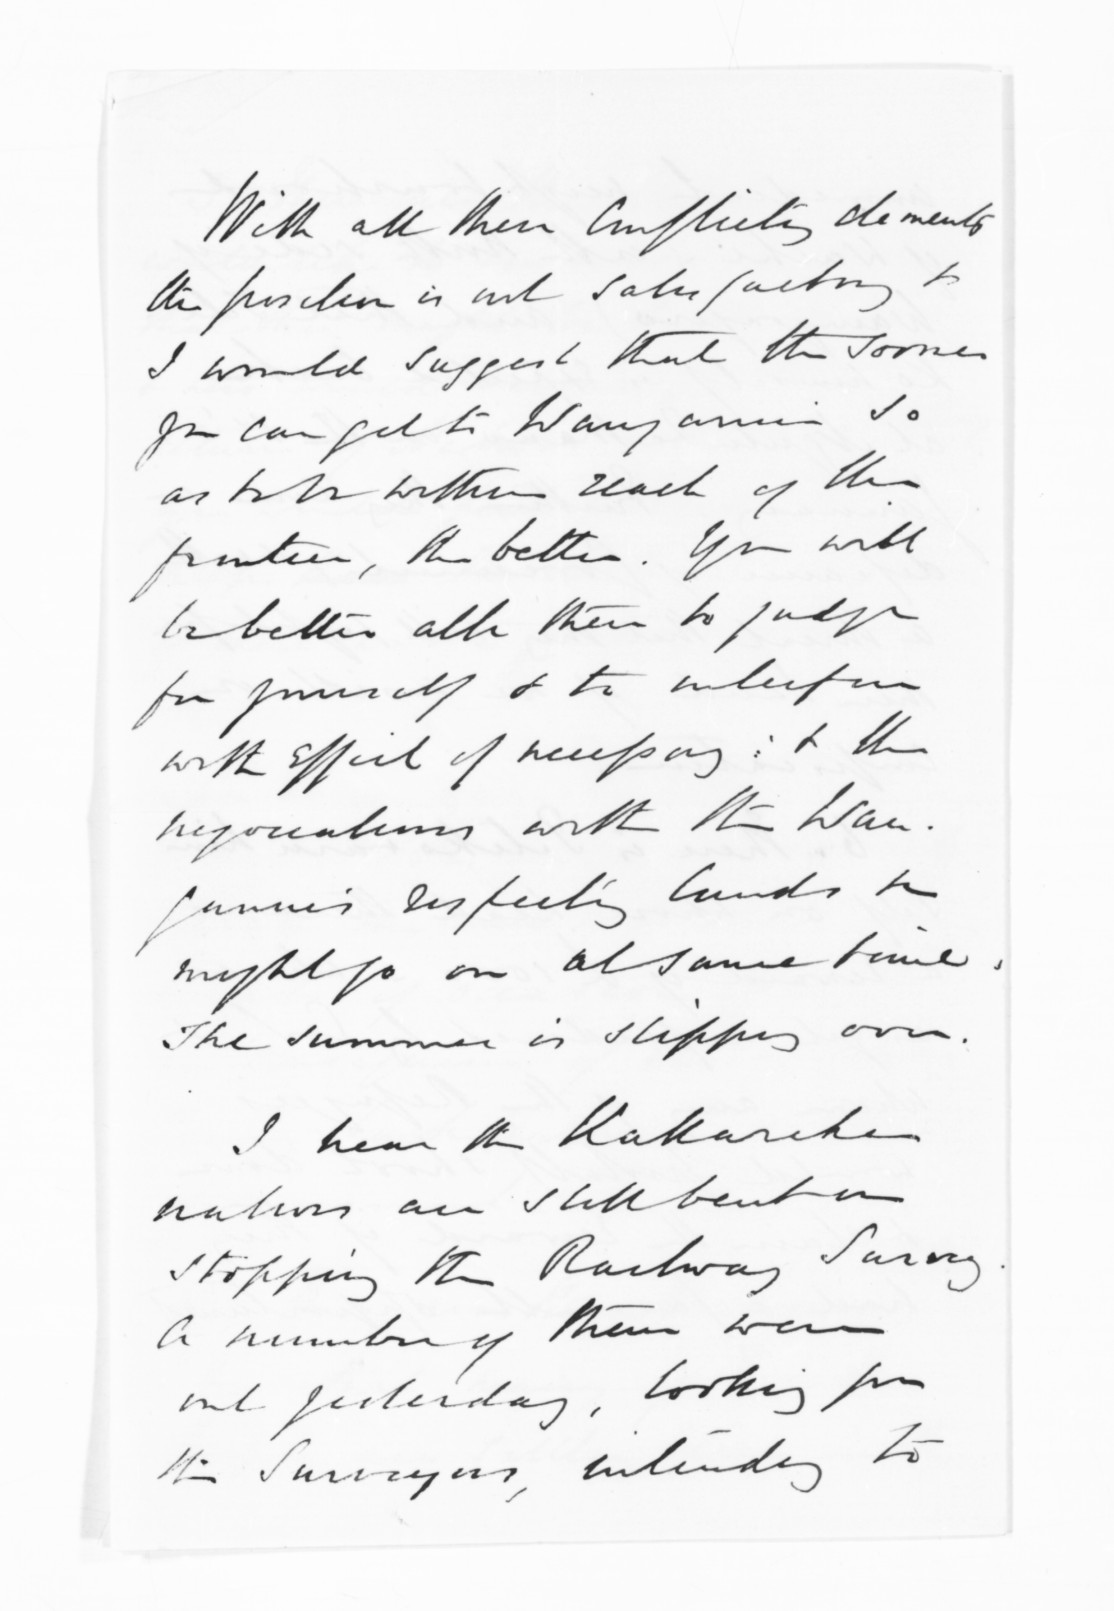 With all these Conflicting elements
the position is not satisfactory &
I would suggest that the sooner
you can get to Wanganui so
as to be within reach of the
frontier, the better. You will
be better able then to judge
for yourself & to interfere
with effect if necessary: & the
negociations with the Wan-
ganui's respecting lands &c
might go on at same time.
The summer is slipping over.
I hear the Kakaramea
natives are still bent on
stopping the Railway Survey.
A number of them were
out yesterday, looking for
the Surveyors, intending to